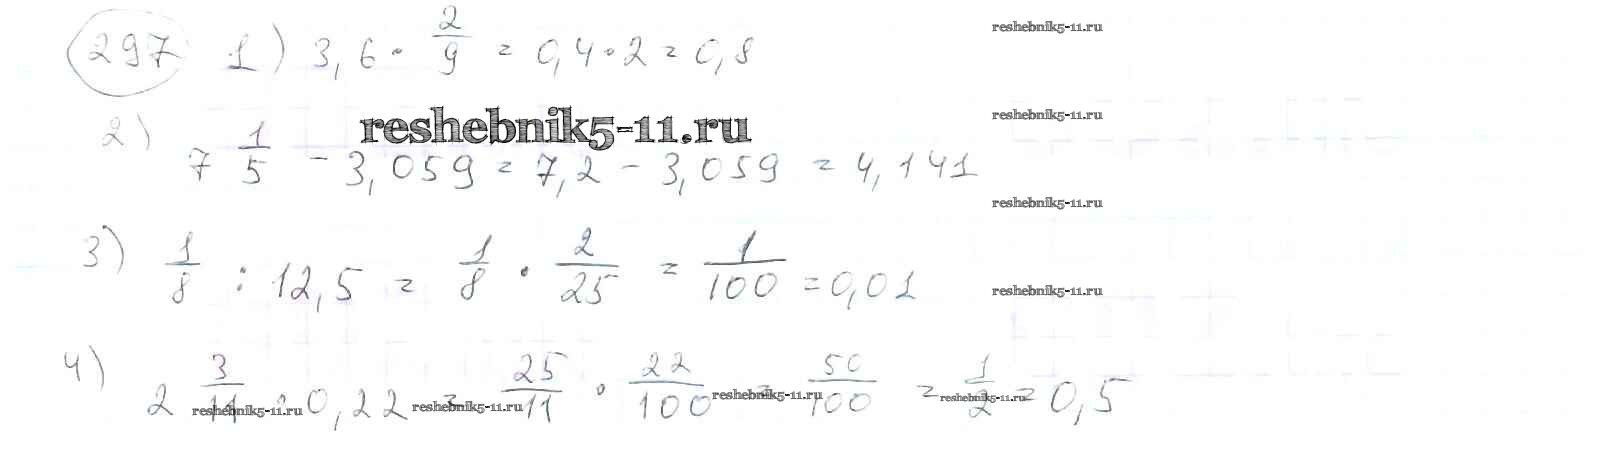 297 1) 3,6 · 2/9 = 0,4 · 2 = 0,8
reshebnik5-11.ru
reshebnik5-11.ru
reshebnik5-11.ru
2) 7 1/5 - 3,059 = 7,2 - 3,059 = 4,141
reshebnik5-11.ru
3) 1/8 : 12,5 = 1/8 · 2/25 = 1/100 = 0,01
reshebnik5-11.ru
4) 2 3/11 · 0,22 = 25/11 · 22/100 = 50/100 = 1/2 = 0,5
reshebnik5-11.ru reshebnik5-11.ru reshebnik5-11.ru reshebnik5-11.ru